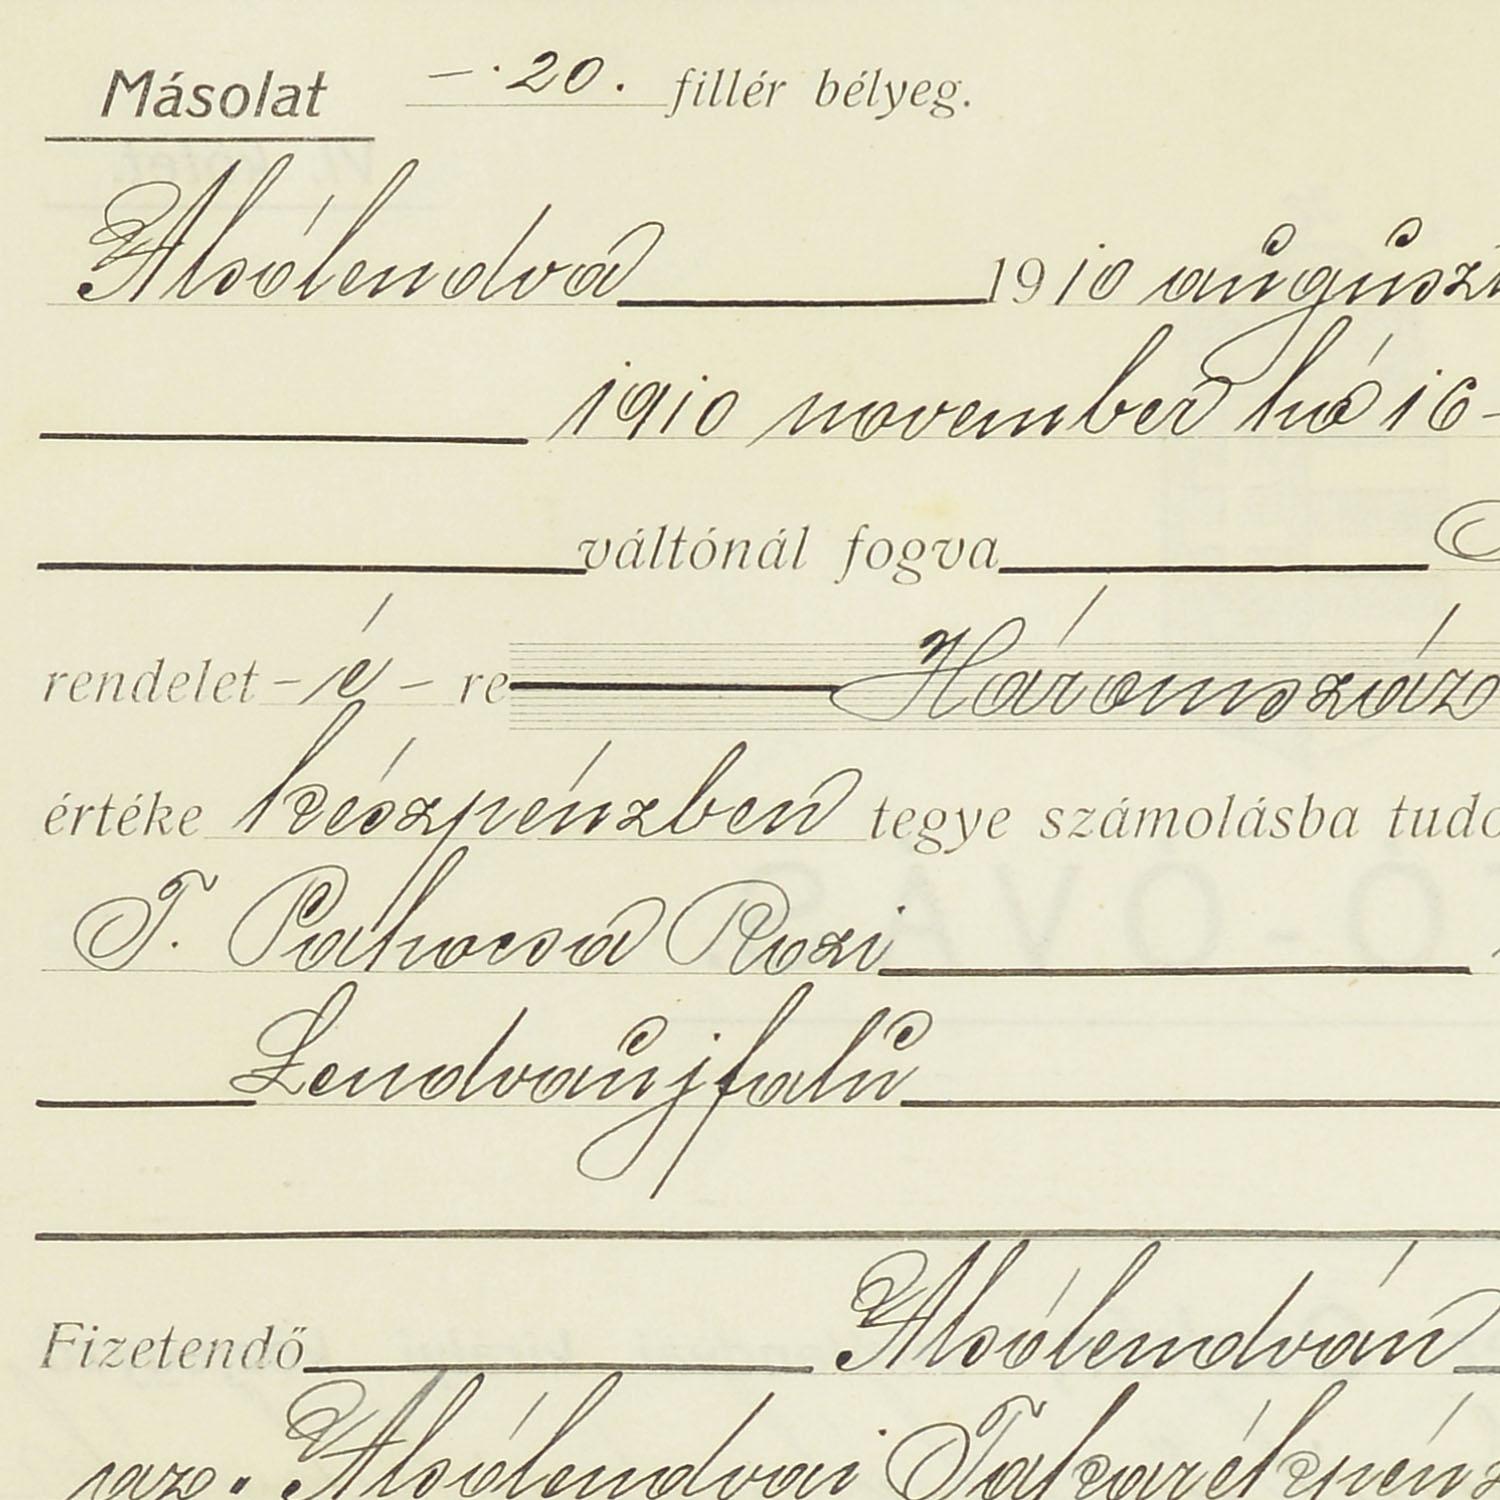 Másolat —·20. fillér bélyeg.
Alsólendva 1910 auguszt
1910 november hó 16-
váltónál fogva
rendelet-é-re Háromszáz
értéke készpénzben tegye számolásba tudo
T. Pahocsa Rozi
Lendvaújfalu
Fizetendő Alsólendván
az. Alsólendvai Takarékpénz